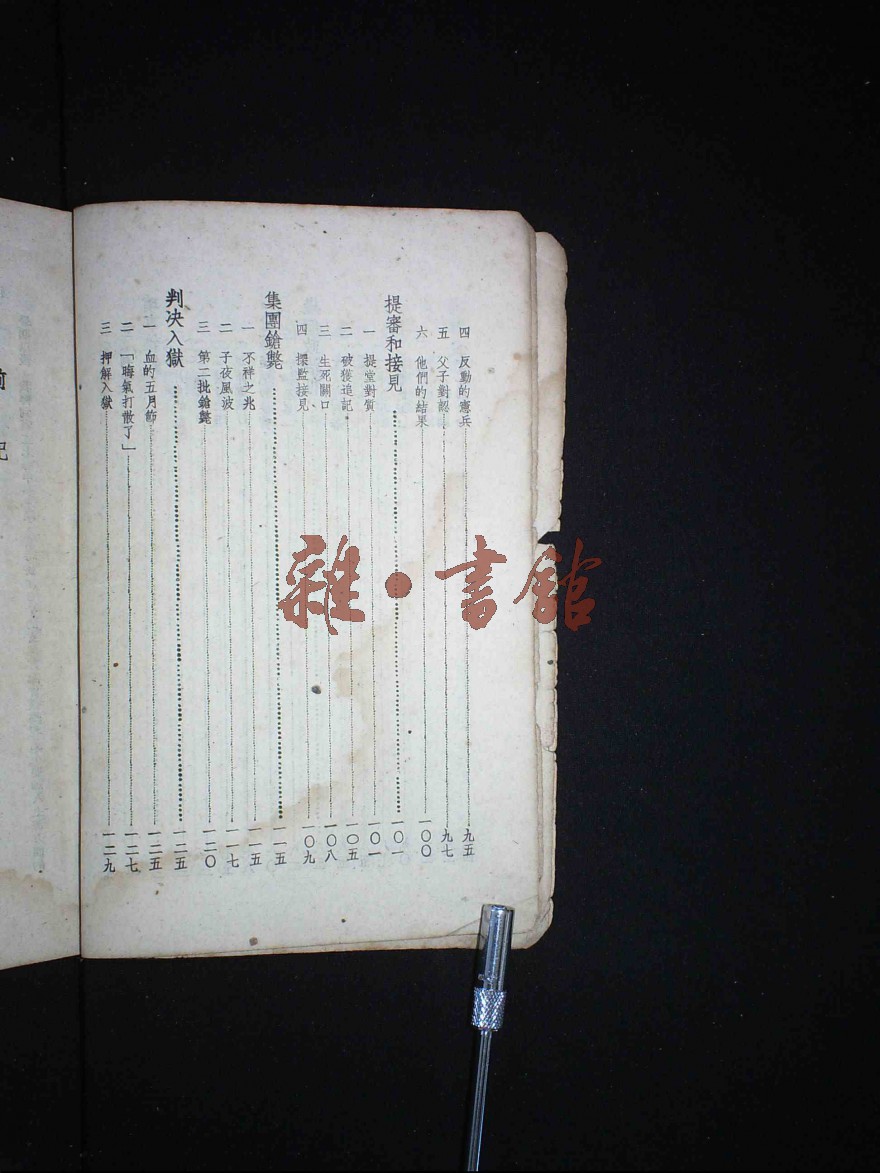 四 反動的憲兵 九五
五 父子對認 九七
六 他們的結果 一〇〇
提審和接見 一〇一
一 提堂對質 一〇一
二 破獲追記 一〇五
三 生死關口 一〇八
四 探監接見 一〇九
集團鎗斃 一一五
一 不祥之兆 一一五
二 子夜風波 一一七
三 第二批鎗斃 一二〇
判决入獄 一二五
一 血的五月節 一二五
二 「晦氣打散了」 一二七
三 押解入獄 一二九
記
雜·書館